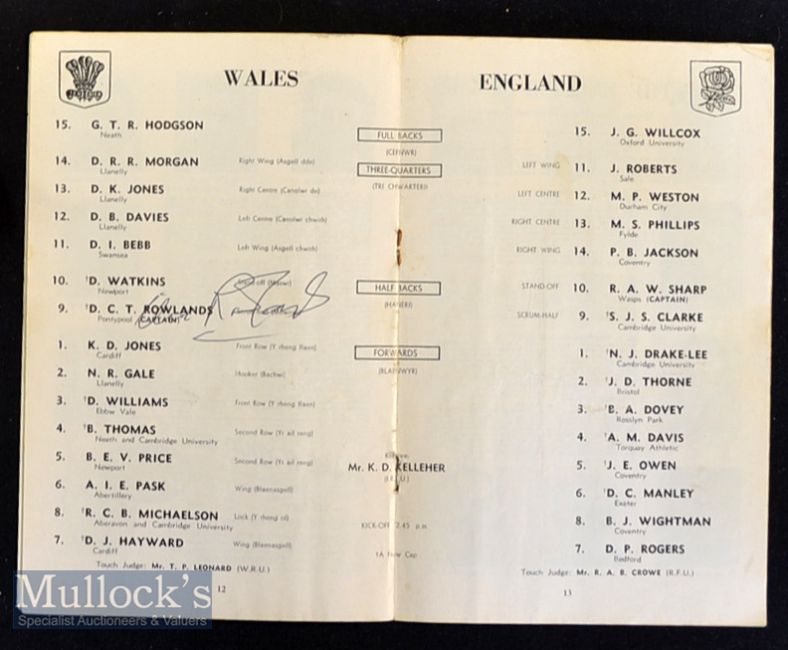 WALES
15. G. T. R. HODGSON
Neath
14. D. R. R. MORGAN Right Wing (Asgell dde)
Llanelly
13. D. K. JONES Right Centre (Canolwr de)
Llanelly
12. D. B. DAVIES Left Centre (Canolwr chwith)
Llanelly
11. D. I. BEBB Left Wing (Asgell chwith)
Swansea
10. 'D. WATKINS
Newport
9. 'D. C. T. ROWLANDS
Pontypool (CAPTAIN)
1. K. D. JONES Front Row (Y rheng flaen)
Cardiff
2. N. R. GALE Hooker (Bachwr)
Llanelly
3. 'D. WILLIAMS Front Row (Y rheng flaen)
Ebbw Vale
4. 'B. THOMAS Second Row (Yr ail reng)
Neath and Cambridge University
5. B. E. V. PRICE Second Row (Yr ail reng)
Newport
6. A. I. E. PASK Wing (Blaenasgell)
Abertillery
8. 'R. C. B. MICHAELSON Lock (Y rheng ol)
Aberavon and Cambridge University
7. 'D. J. HAYWARD Wing (Blaenasgell)
Cardiff
Touch Judge: Mr. T. P. LEONARD (W.R.U.)
12
FULL BACKS
(CEFNWR)
THREE-QUARTERS
(TRI CHWARTERI)
HALF BACKS
(HANERI)
FORWARDS
(BLAENWYR)
Mr. K. D. KELLEHER
(I.R.F.U.)
KICK-OFF 2.45 p.m.
'A New Cap
ENGLAND
15. J. G. WILLCOX
Oxford University
LEFT WING 11. J. ROBERTS
Sale
LEFT CENTRE 12. M. P. WESTON
Durham City
RIGHT CENTRE 13. M. S. PHILLIPS
Fylde
RIGHT WING 14. P. B. JACKSON
Coventry
STAND-OFF 10. R. A. W. SHARP
Wasps (CAPTAIN)
SCRUM-HALF 9. 'S. J. S. CLARKE
Cambridge University
1. 'N. J. DRAKE-LEE
Cambridge University
2. 'J. D. THORNE
Bristol
3. 'B. A. DOVEY
Rosslyn Park
4. 'A. M. DAVIS
Torquay Athletic
5. 'J. E. OWEN
Coventry
6. 'D. C. MANLEY
Exeter
8. B. J. WIGHTMAN
Coventry
7. D. P. ROGERS
Bedford
Touch Judge: Mr. R. A. B. CROWE (R.F.U.)
13
Mullock's
Specialist Auctioneers & Valuers